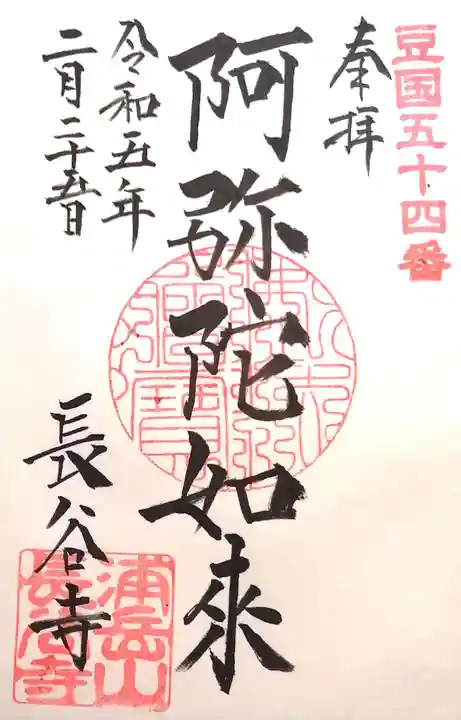 豆国五十四番
奉拝
阿弥陀如来
令和五年
二月二十五日
長谷寺
浦岳山
長谷寺